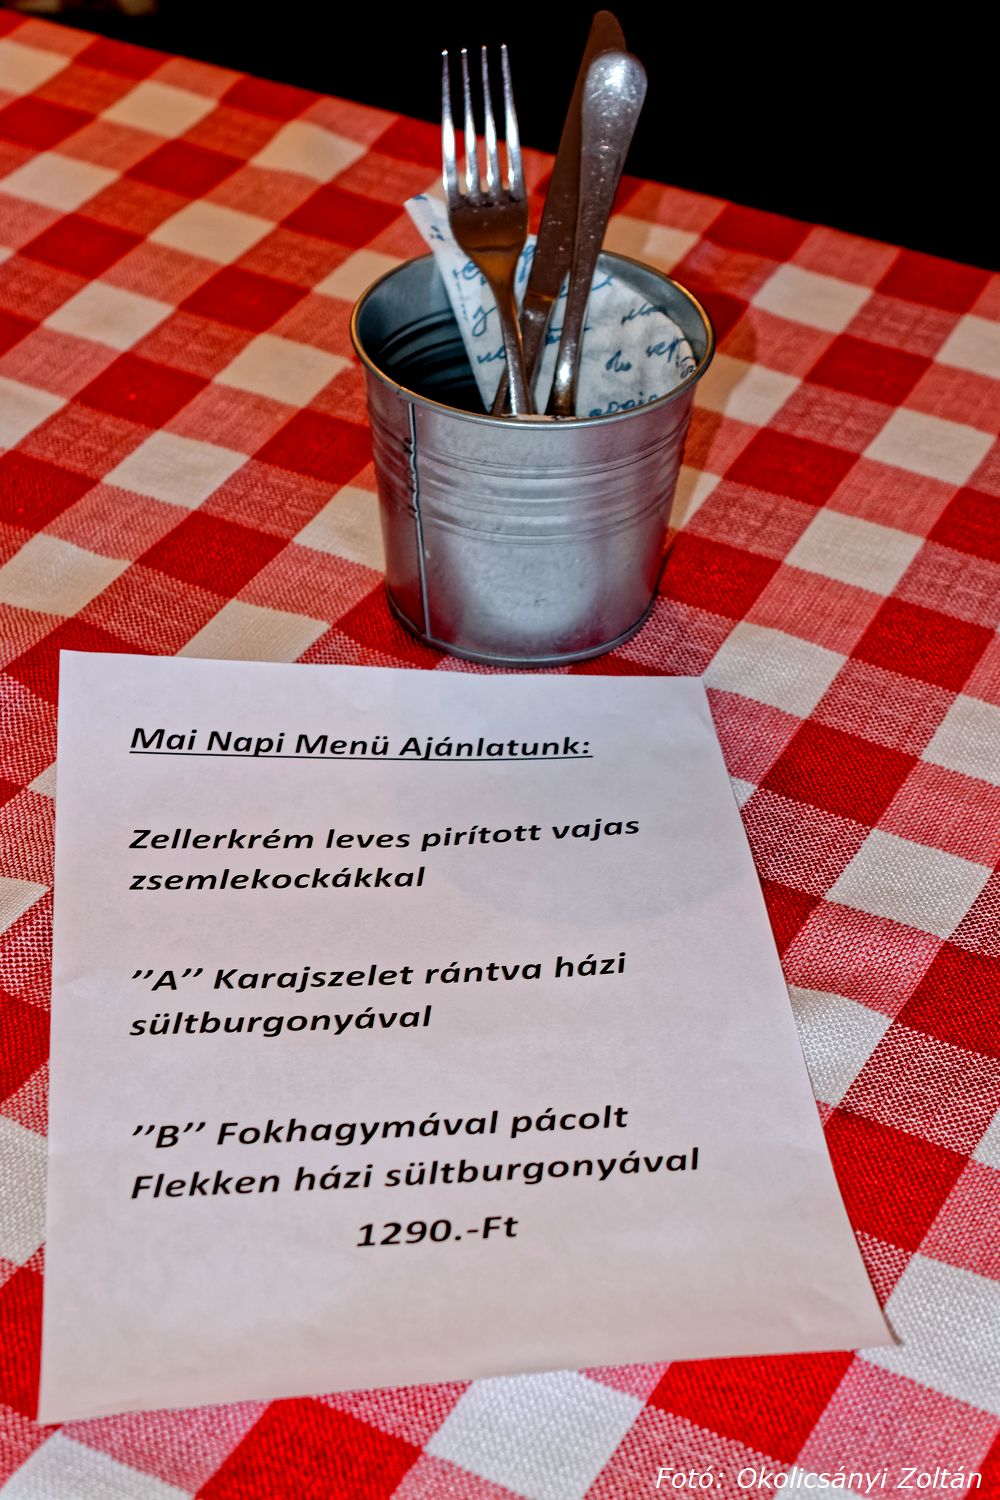 Mai Napi Menü Ajánlatunk:
Zellerkrém leves pirított vajas
zsemlekockákkal
’’A’’ Karajszelet rántva házi
sültburgonyával
’’B’’ Fokhagymával pácolt
Flekken házi sültburgonyával
1290.-Ft
Fotó: Okolicsányi Zoltán